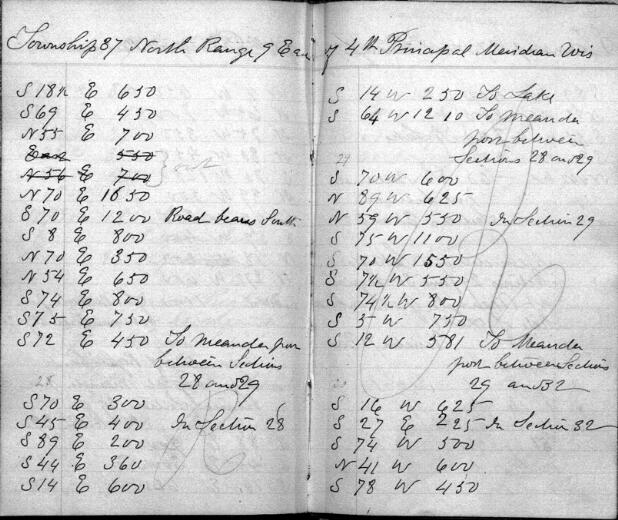 Township 37 North Range 9 East of 4th Principal Meridian Wis
S 18½ E 650
S 69 E 450
N 55 E 700
East 550
N 56 E 700 } out
N 70 E 1650
E 70 E 1200 Road bears South
S 8 E 800
N 70 E 350
N 54 E 650
S 74 E 800
S 75 E 750
S 72 E 450 To Meander post
between Sections
28 28 and 29
S 70 E 300
S 45 E 400 In Section 28
S 89 E 200
S 44 E 360
S 14 E 600
S 14 W 250 To Lake
S 64 W 1210 To Meander
post between
29 Sections 28 and 29
S 70 W 600
N 89 W 625
N 59 W 550 In Section 29
S 75 W 1100
S 70 W 1550
S 7½ W 550
S 74½ W 800
S 5 W 750
S 12 W 581 To Meander
post between Sections
29 and 32
S 16 W 625
S 27 E 225 In Section 32
S 74 W 500
N 41 W 600
S 78 W 450